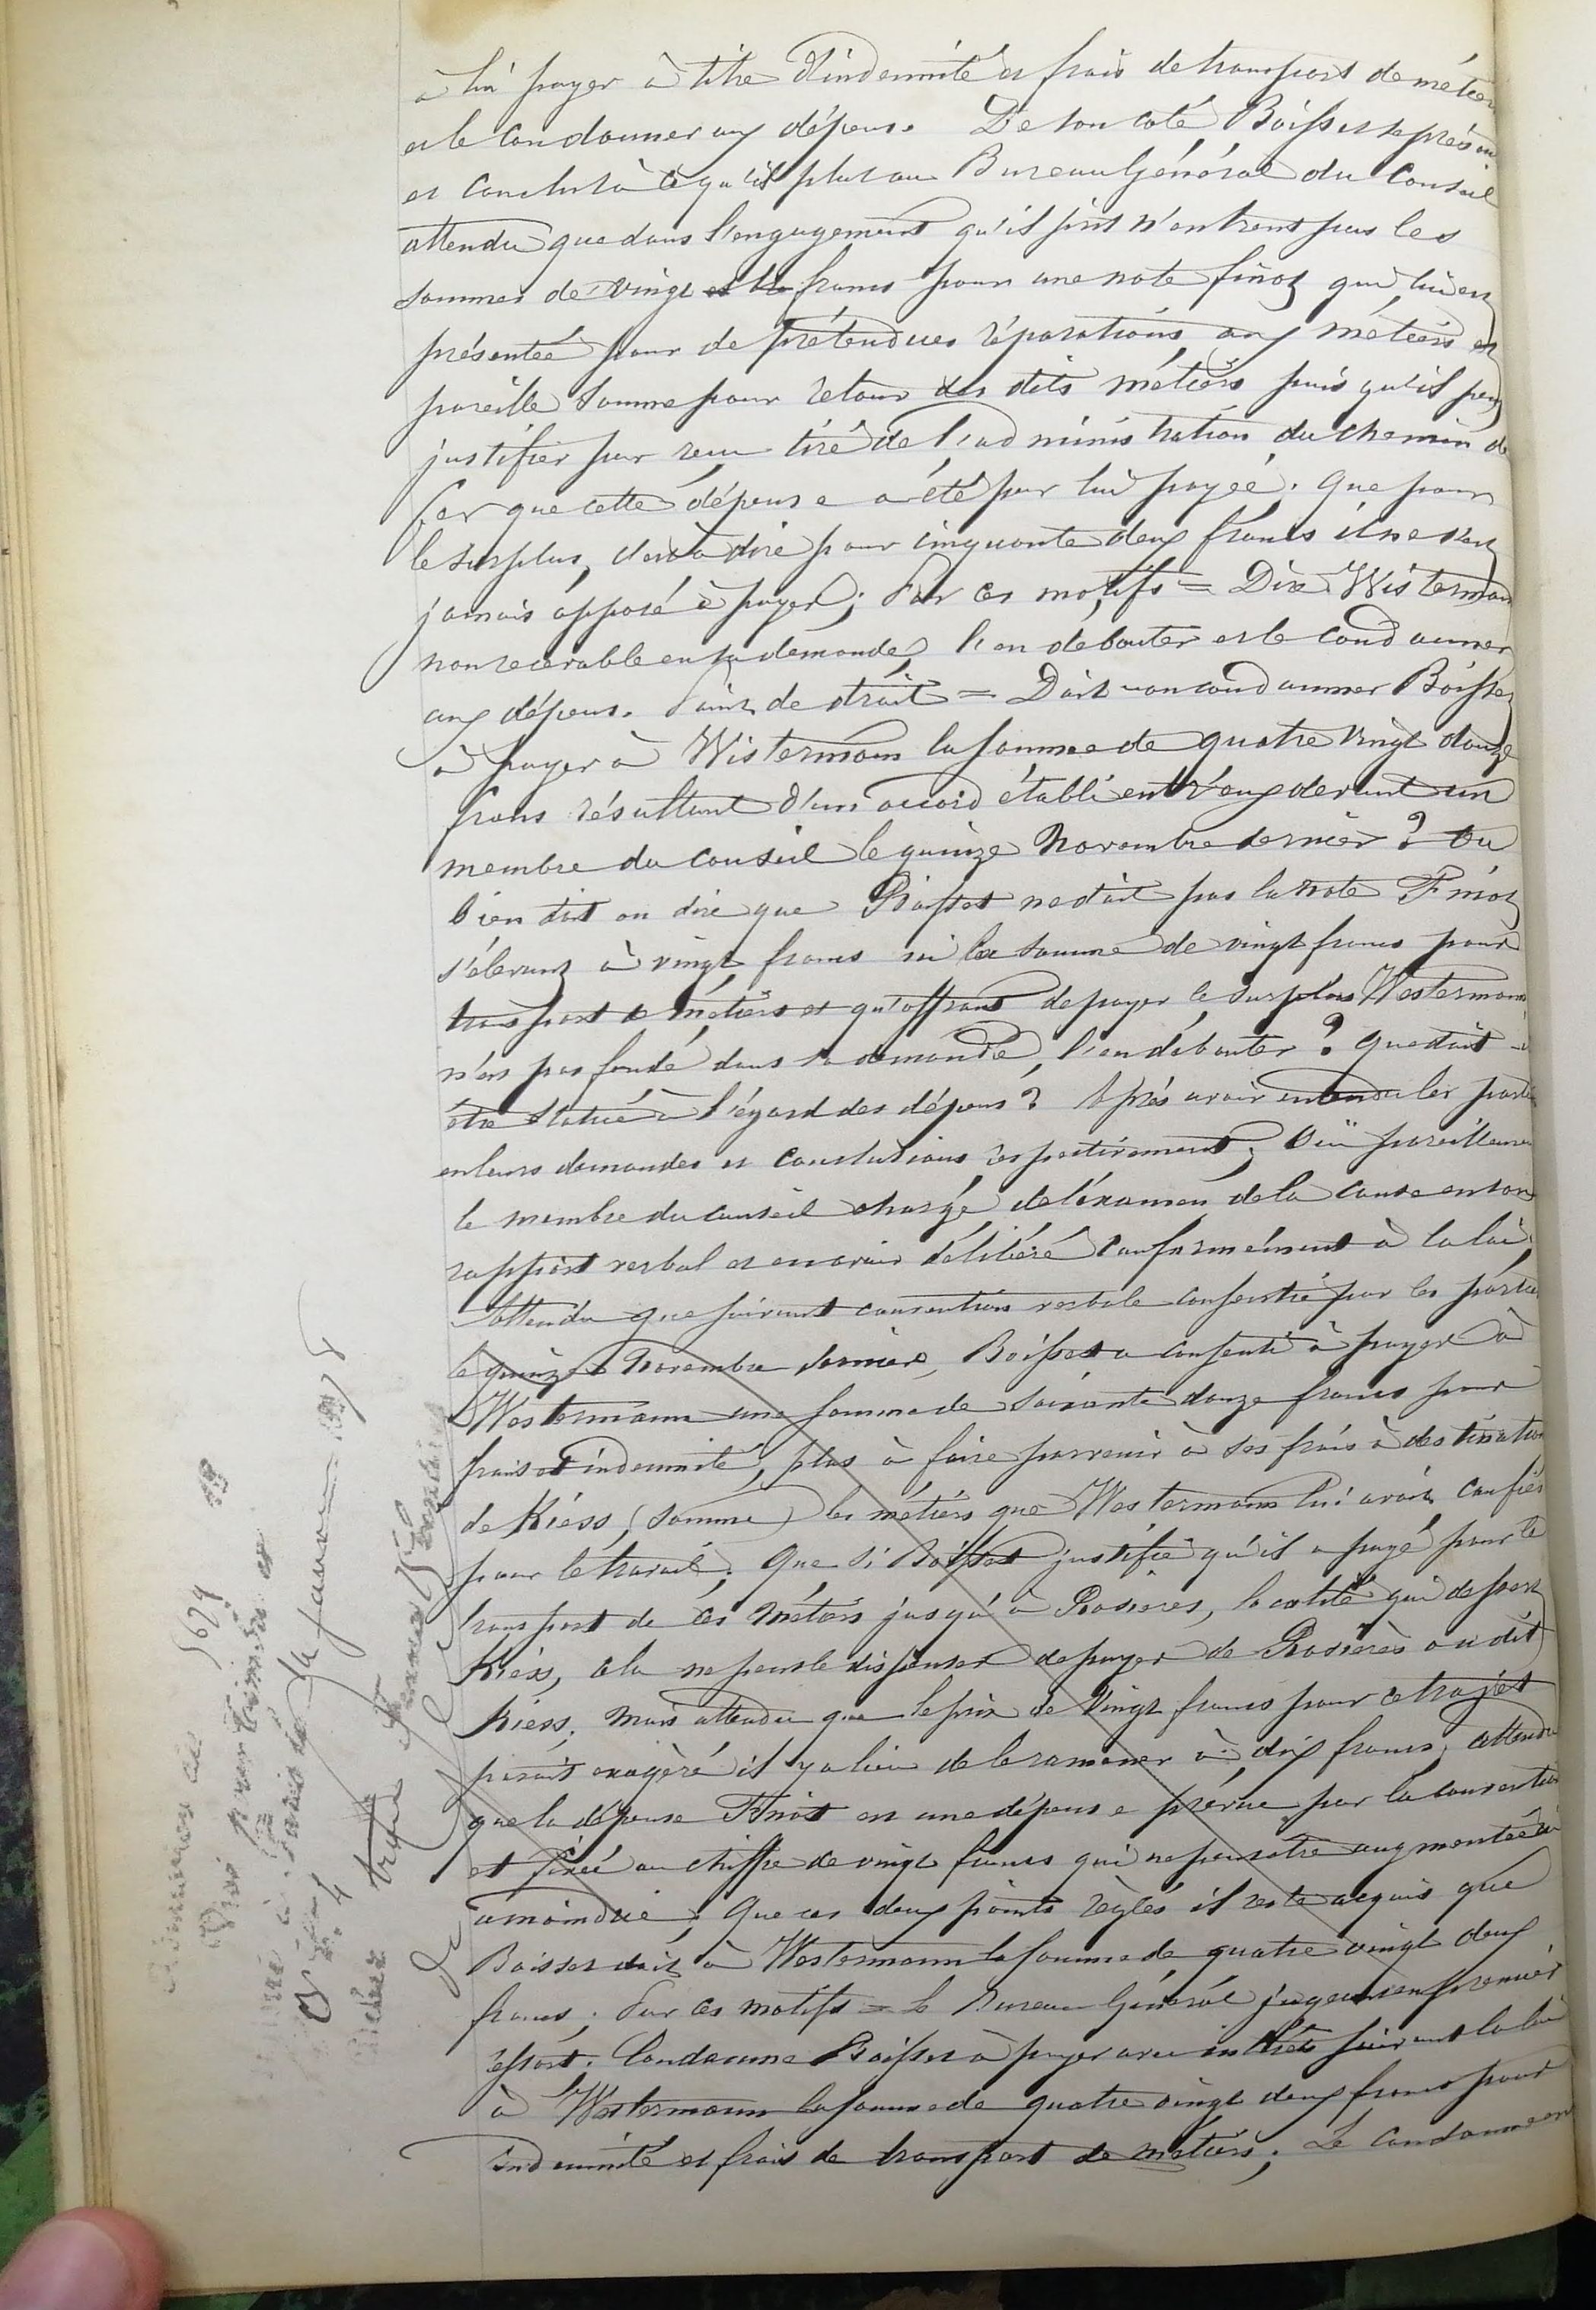 à lui payer à titre d'indemnité et frais de transport de métiers
et le condamner aux dépens. De son coté Boisset se présenta
et conclut à ce qu'il plut au Bureau Général du Conseil
attendu que dans l'engagement qu'il prit n'entrent pas les
sommes de vingt francs pour une note finot qui lui est
présentée pour de prétendues réparations aux métiers et
pareille somme pour retour des dits métiers puis qu'il peut
justifier par reçu tiré de l'administration du chemin de
fer que cette dépense a été par lui payée. Que pour
le surplus, c'est à dire pour cinquante deux francs il ne s'est
jamais opposé à payer; Par ces motifs = Dire Wistermann
non recevable en sa demande, l'en débouter et le condamner
aux dépens. Point de droit = Doit-on condamner Boisset
à payer à Wistermann la somme de quatre vingt douze
francs résultant d'un accord établi entr'eux devant un
membre du Conseil le quinze Novembre dernier? Ou
bien doit on dire que Boisset ne doit pas la note Finot
s'élevant à vingt francs ni la somme de vingt francs pour
transport de métiers et qu'offrant de payer le surplus Westermann
n'est pas fondé dans sa demande, l'en débouter? Que doit-il
être statué à l'égard des dépens? Après avoir entendu les parties
en leurs demandes et conclusions respectivement; Ouï pareillement
le membre du conseil chargé de l'examen de la cause en son
rapport verbal et en avoir délibéré conformément à la loi;
Attendu que suivant convention verbale consentie par les parties
le quinze Novembre dernier, Boisset a consenti à payer à
Westermann une somme de soixante douze francs pour
frais et indemnité, plus à faire parvenir à ses frais à destination
de Kiéss (Somme) les métiers que Westermann lui avait confiés
pour le travail; Que si Boisset justifie qu'il a payé pour le
transport de ces métiers jusqu'à Rosières, localité qui dessert
Kiéss, cela ne peut le dispenser de payer de Rosières au dit
Kiéss; Mais attendu que le prix de vingt francs pour ce trajet
parait exagéré il y a lieu de le ramener à dix francs; attendu
que la dépense Finot est une dépense prévue par la convention
et fixée au chiffre de vingt francs qui ne peut être augmentée ni
amoindrie; Que ces deux points réglés il reste acquis que
Boisset doit à Westermann la somme de quatre vingt deux
francs; Par ces motifs = Le Bureau Général jugeant en premier
ressort; Condamne Boisset à payer avec intérêts suivant la loi
à Westermann la somme de quatre vingt deux francs pour
indemnité et frais de transport de métiers; Le condamne en